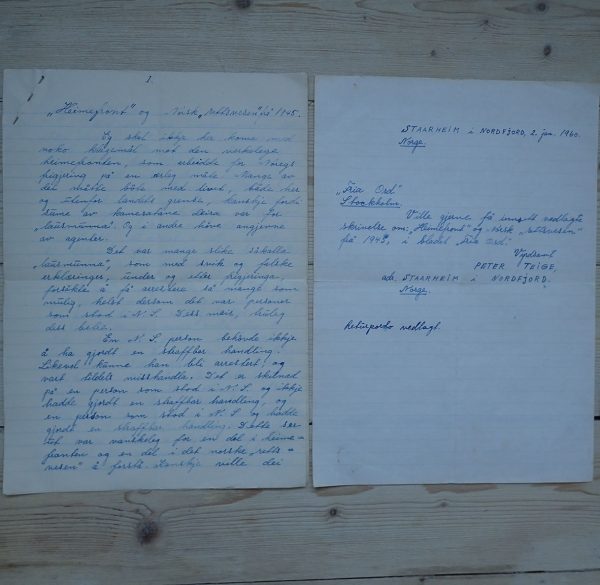 1
„Heimefront" og Norsk „rettsvesen" frå 1945.
Eg skal ikkje her kome med
noko klagemål mot den verkelege
heimefronten, som arbeidde for Noregs
Regjering på en ærleg måte. Mange av
dei måtte bøte med livet, både her
og utenfor landets grenser, kanskje fordi
sume av kameratane deira var for
„lausmunna". Og i andre høve angjevne
av agenter.
Det var mange slike såkalla
„lausmunna", som med svik og falske
erklæringer, under og etter krigen
forsøkte å få arrestere så mange som
mulig, helst dersom det var personer
som stod i N. S. Dess meir, huleg
dess betre.
En N. S. person behövde ikkje
å ha gjordt en straffbar handling.
Likevel kunne han bli arrestert og
vart tildels misshandla. Det er skilnad
på en person som stod i N. S. og ikkje
hadde gjordt en straffbar handling, og
en person som stod i N. S. og hadde
gjordt en straffbar handling. Dette
var vanskeleg for en del i heime-
fronten og en del i det norske „retts-
vesen" å forstå. Kanskje ville dei
STAARHEIM i NORDFJORD, 2. jan. 1960.
Norge.
„Fria Ord"
Stockholm.
Ville gjerne få inntatt vedlagte
skrivelse om: „Heimefront" og Norsk „rettsvesen"
frå 1945, i bladet „Fria Ord".
Vyrdsamt
PETER TEIGE,
adr. STAARHEIM i NORDFJORD.
Norge.
Returporto vedlagt.